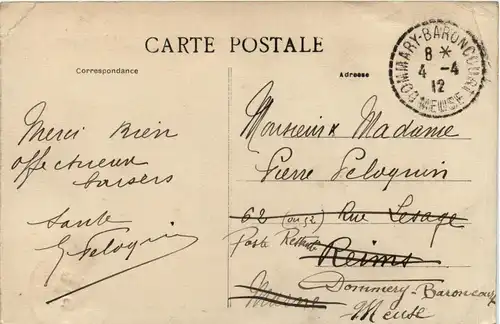 CARTE POSTALE
Correspondance
Adresse
DOMMARY-BARONCOURT
8 *
4 -4
12
MEUSE
Merci bien
affectueux
baisers
Monsieur & Madame
Pierre Peloquin
62 (ou 52) Rue Lesage
Poste Restante Reims
Marne
Dommery-Baroncourt
Meuse